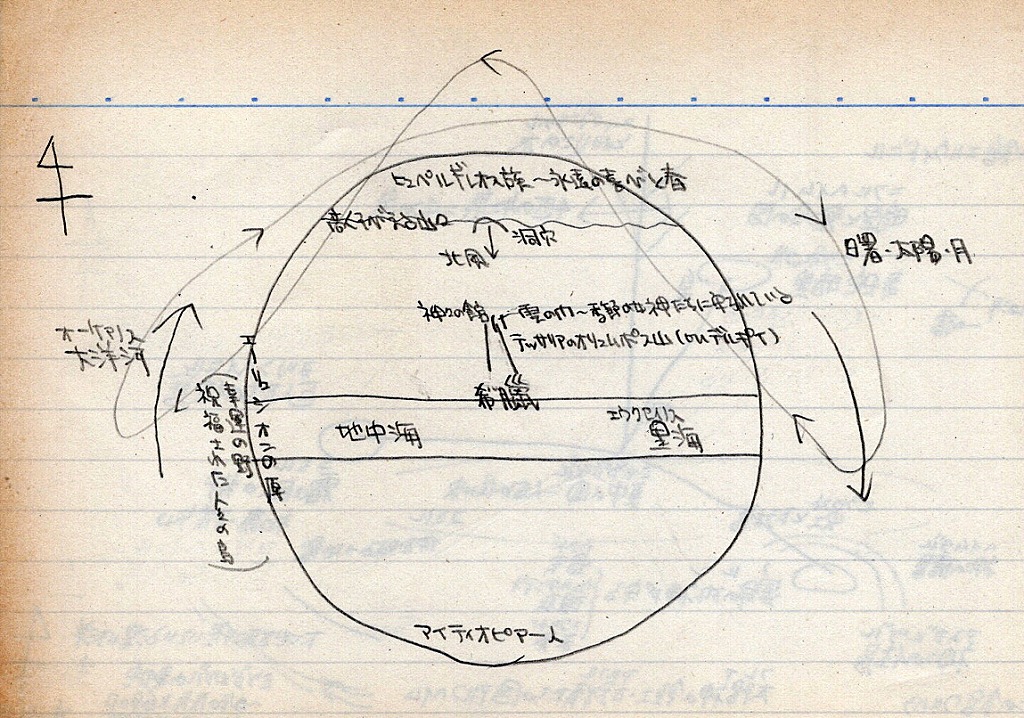 ヒュペルボレオス族〜永遠の喜びと春
洞穴
北風
曙・太陽・月
神々の館
雲の門〜季節の女神たちに守られている
テッサリアのオリュムポス山(orデルポイ)
オーケアノス
大洋河
希臘
エウクセイノス
黒海
地中海
エーリュシオンの原
幸運の野
祝福された人々の島
アイティオピアー人